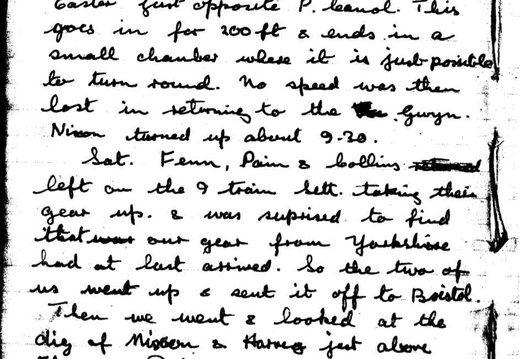 Easter just opposite P. Canol. This
goes in for 200ft & ends in a
small chamber where it is just possible
to turn round. No speed was then
lost in returning to the Gwyn.
Nixon turned up about 9.30.
Sat. Fenn, Pain & Collins
left on the 9 train taking their
gear up. & was suprised to find
that was our gear from Yorkshire
had at last arrived. So the two of
us went up & sent it off to Bristol.
Then we went & looked at the
dig of & Harvey just above